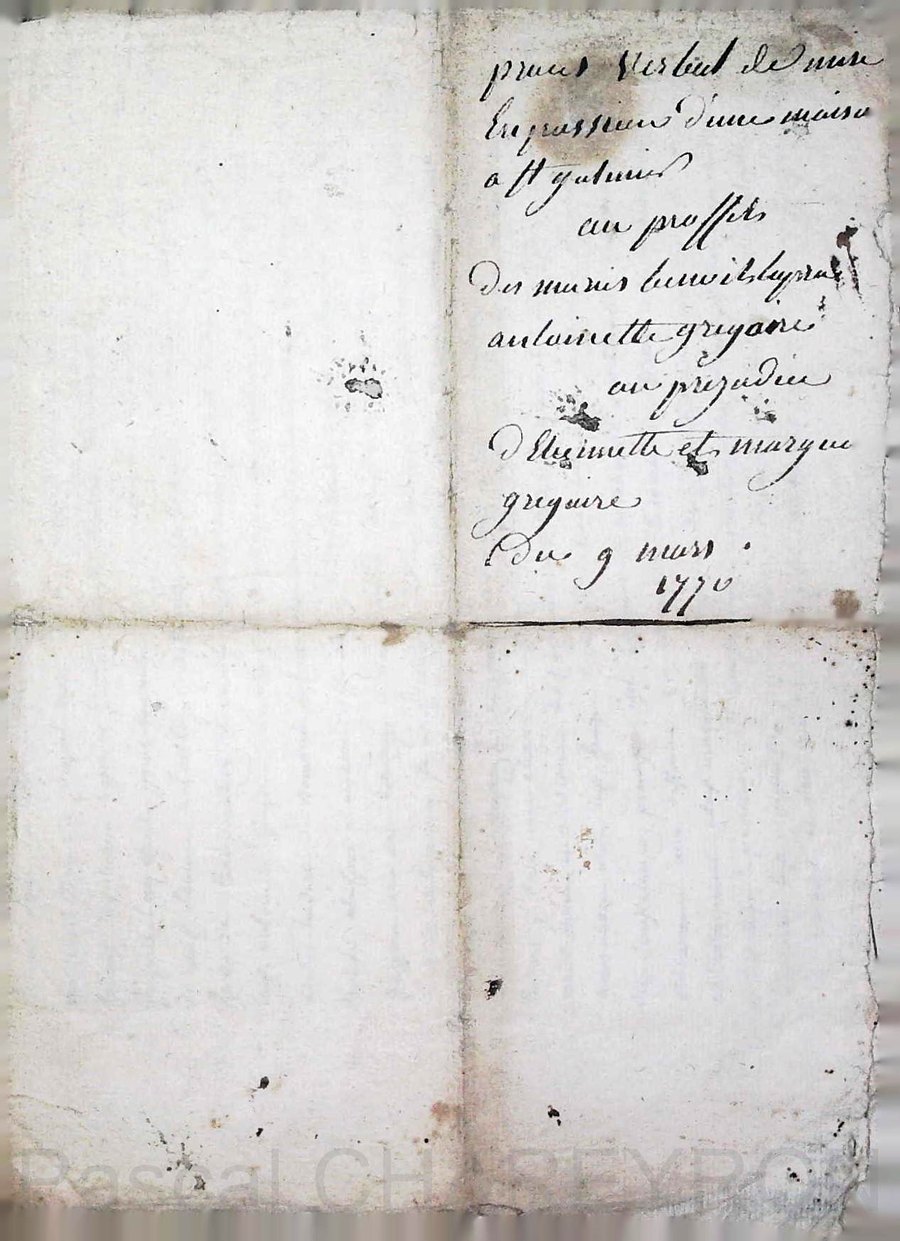 proces Verbal de mise
En possion d'une maiso
a st galmier
au proffit
des maries benoit
antoinette gregoire
au prejudice
d'Etiennette et margue
gregoire
du 9 mars
1770
Pascal CHAREYRON